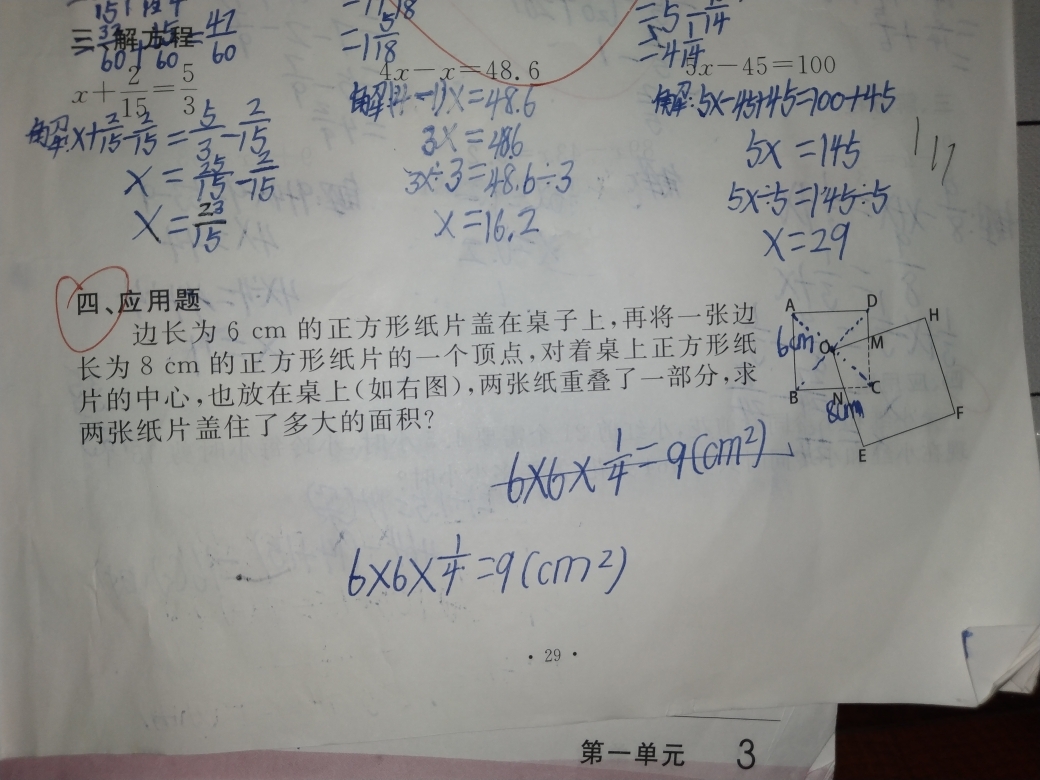 三、解方程
=1 5/18
=4 1/14
x+2/15=5/3
4x-x=48.6
5x-45=100
解:x+2/15-2/15=5/3-2/15
x=25/15-2/15
x=23/15
解:(4-1)x=48.6
3x=48.6
3x÷3=48.6÷3
x=16.2
解:5x-45+45=100+45
5x=145
5x÷5=145÷5
x=29
四、应用题
边长为 6 cm 的正方形纸片盖在桌子上,再将一张边
长为 8 cm 的正方形纸片的一个顶点,对着桌上正方形纸
片的中心,也放在桌上(如右图),两张纸重叠了一部分,求
两张纸片盖住了多大的面积?
A
D
H
6cm
O
M
B
N
C
8cm
F
E
6×6×1/4=9(cm²)
6×6×1/4=9(cm²)
· 29 ·
第一单元 3